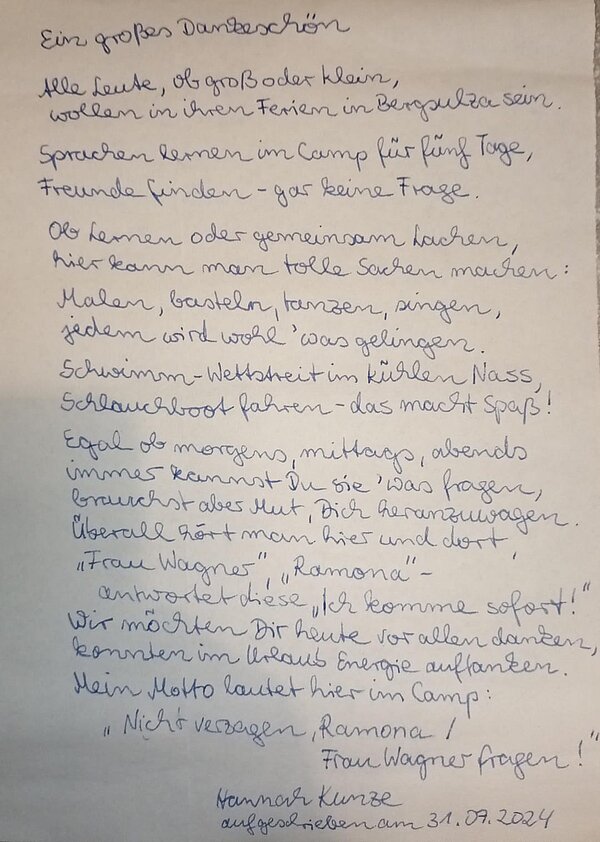 Ein großes Dankeschön
Alle Leute, ob groß oder klein,
wollen in ihren Ferien in Bergsulza sein.
Sprachen lernen im Camp für fünf Tage,
Freunde finden - gar keine Frage.
Ob Lernen oder gemeinsam Lachen,
hier kann man tolle Sachen machen:
Malen, basteln, tanzen, singen,
jedem wird wohl 'was gelingen.
Schwimm-Wettstreit im kühlen Nass,
Schlauchboot fahren - das macht Spaß!
Egal ob morgens, mittags, abends
immer kannst Du sie 'was fragen,
brauchst aber Mut, Dich heranzuwagen.
Überall hört man hier und dort,
„Frau Wagner", „Ramona" -
antwortet diese „Ich komme sofort!"
Wir möchten Dir heute vor allen danken,
konnten im Urlaub Energie auftanken.
Mein Motto lautet hier im Camp:
„Nicht verzagen, Ramona /
Frau Wagner fragen!"
Hannah Kunze
aufgeschrieben am 31.07.2024